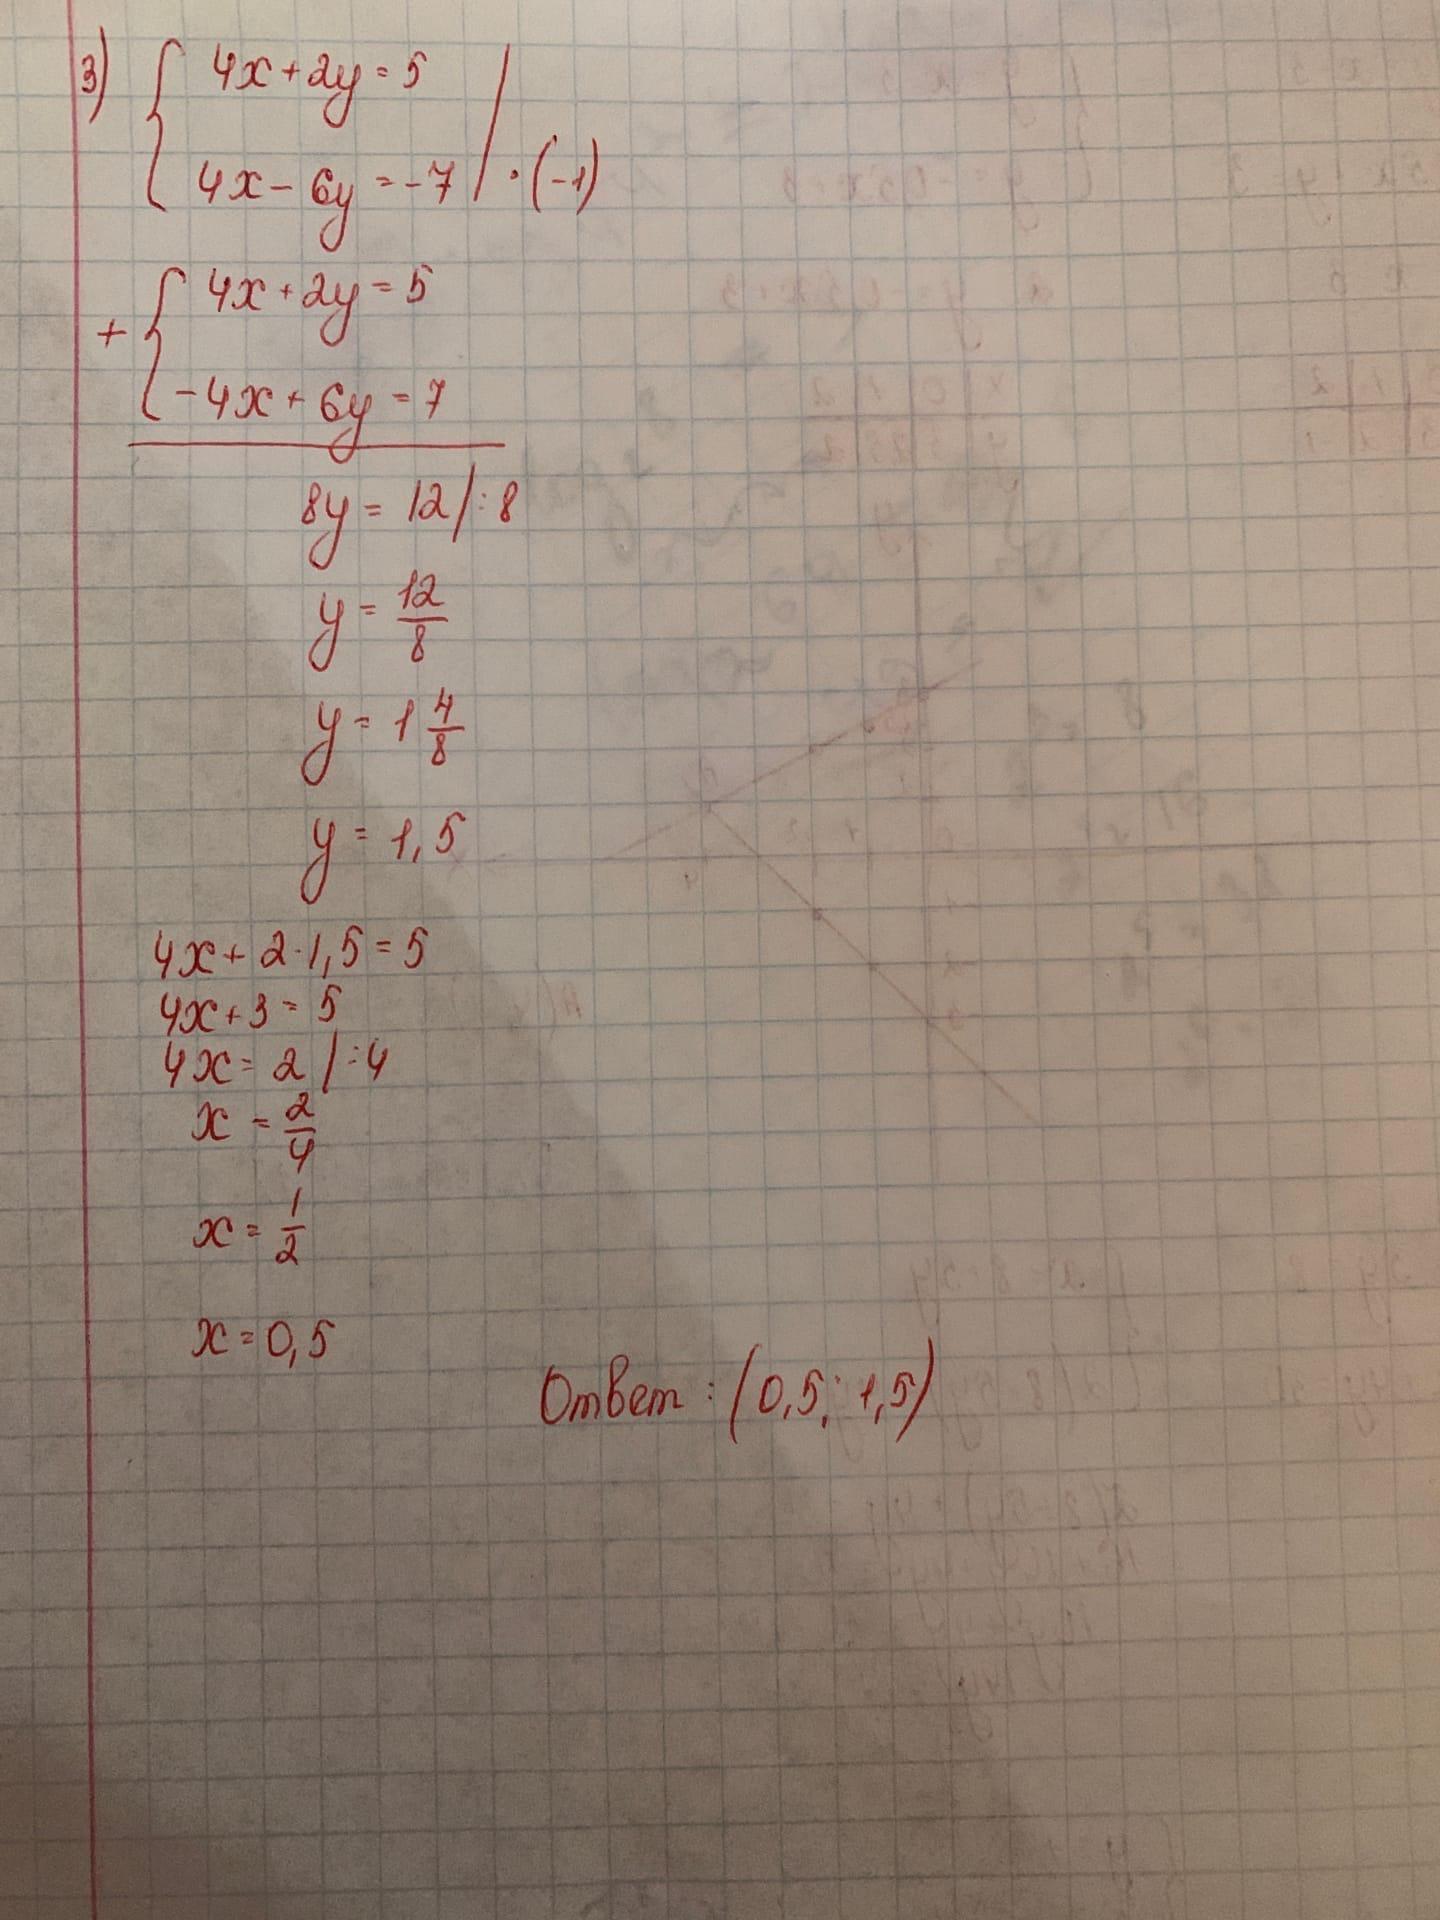 3) { 4x + 2y = 5
4x - 6y = -7 | · (-1)
+ { 4x + 2y = 5
-4x + 6y = 7
8y = 12 | : 8
y = 12/8
y = 1 4/8
y = 1,5
4x + 2 · 1,5 = 5
4x + 3 = 5
4x = 2 | : 4
x = 2/4
x = 1/2
x = 0,5
Ответ : (0,5; 1,5)